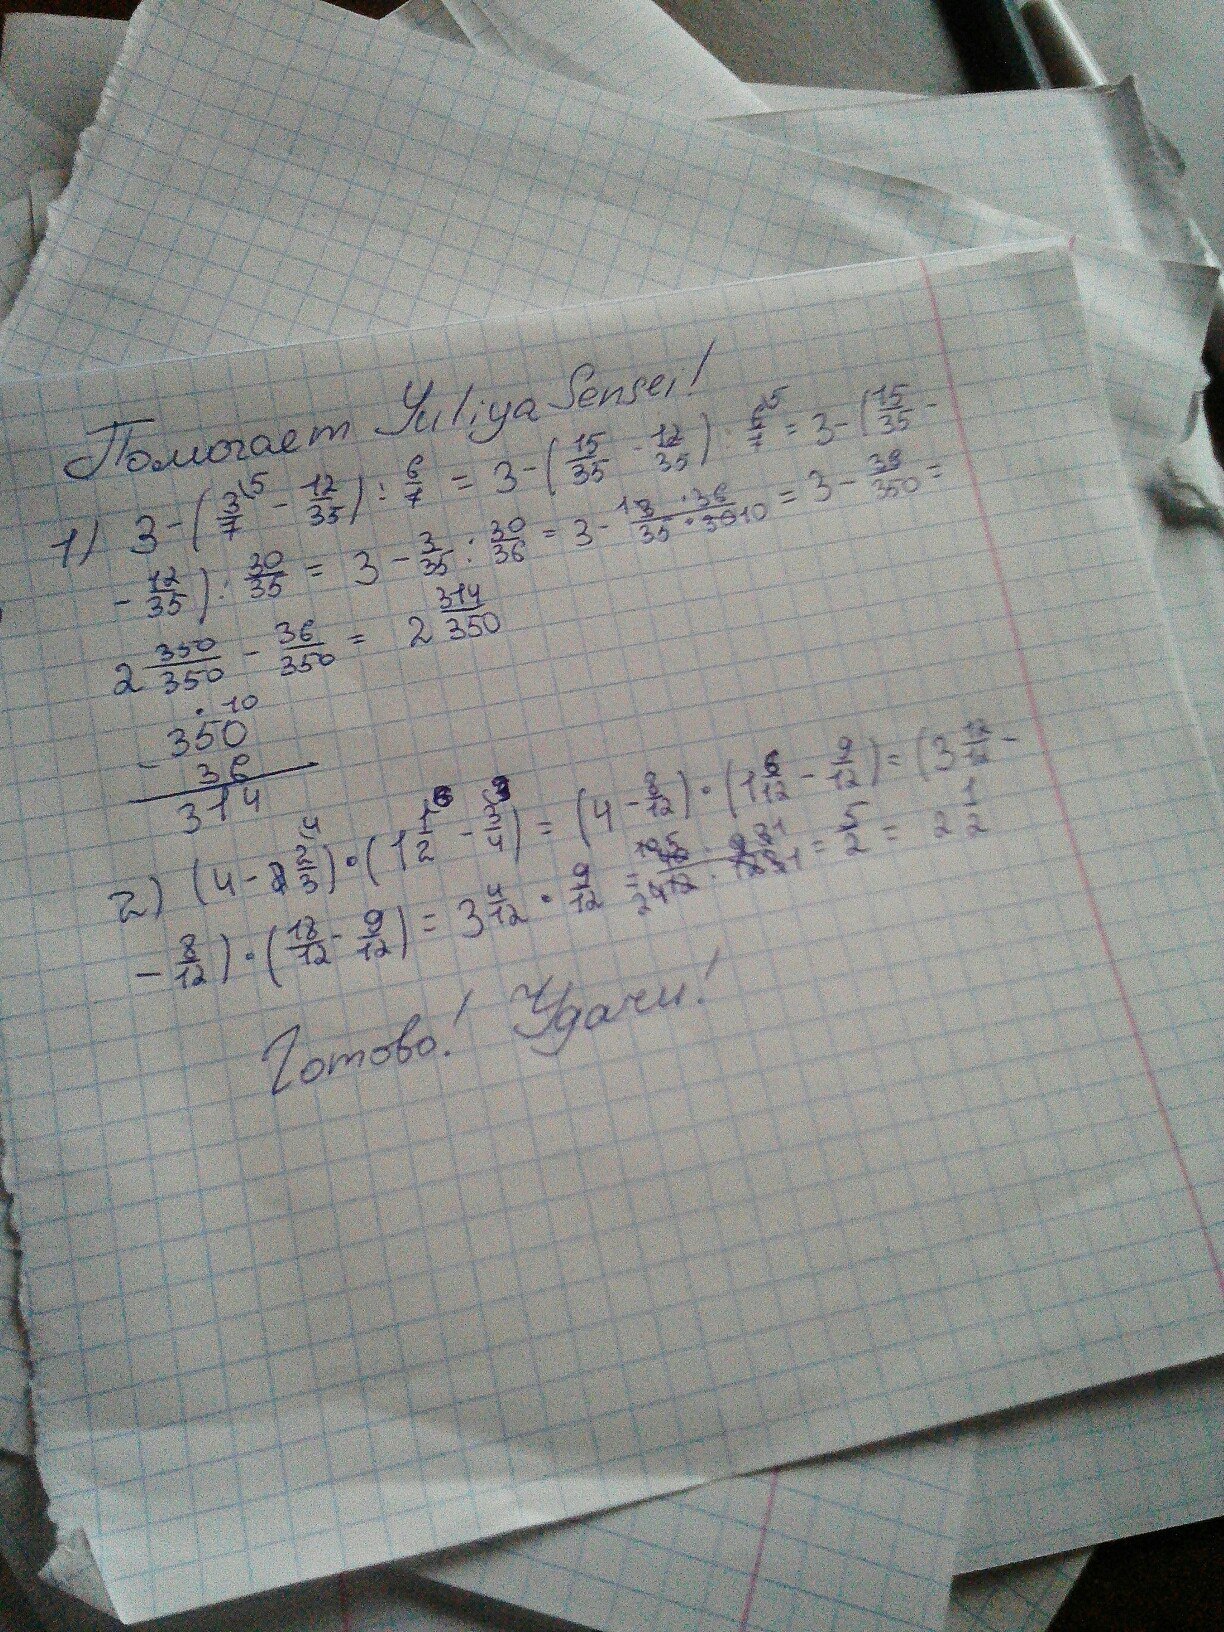 Помогает Yuliya Sensei!
1) 3-(3/7\5 - 12/35) : 6/7 = 3-(15/35 - 12/35) : 6/7\5 = 3-(15/35 -
- 12/35) : 30/35 = 3 - 3/35 : 30/36 = 3 - 3·36/35·30 10 = 3 - 39/350 =
2 350/350 - 36/350 = 2 314/350
· 10
- 350
36
314
2) (4 - 2/3\4) · (1 1/2\6 - 3/4\3) = (4 - 8/12) · (1 6/12 - 9/12) = (3 12/12 -
- 8/12) · (18/12 - 9/12) = 3 4/12 · 9/12 = = 5/2 = 2 1/2
Готово! Удачи!